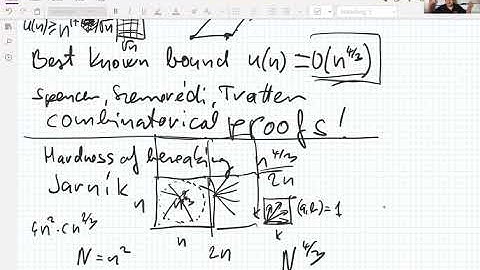 u(n) ≥ n^1+ √n
√n
Best known bound u(n) = O(n^4/3)
Spencer, Szemerédi, Trotter
combinatorical proofs!
Hardness of breaking n^4/3
Jarník
2n
n
n^2/3
(a,b)=1
k
k
4n² · cn^2/3
n
2n
N = n²
N^4/3